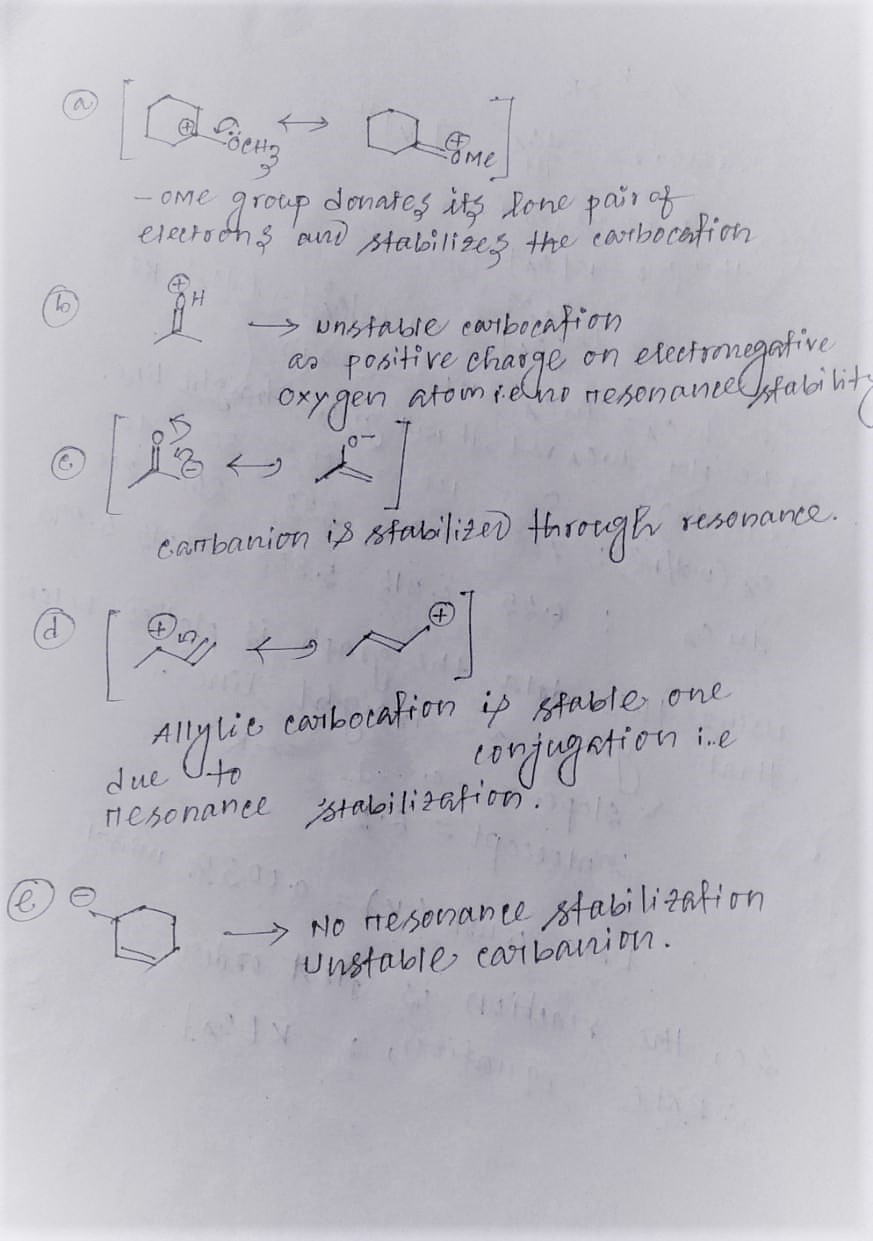 (a) [ ⊕ ÖCH3 ↔ ⊕ OMe ]
- OMe group donates its lone pair of
electrons and stabilizes the carbocation
(b) ⊕ O H → unstable carbocation
as positive charge on electronegative
oxygen atom i.e no resonance stability
(c) [ O ⊖ ↔ O- ]
carbanion is stabilized through resonance.
(d) [ ⊕ ↔ ⊕ ]
Allylic carbocation is stable one
due to conjugation i.e
resonance stabilization.
(e) ⊖ → No resonance stabilization
unstable carbanion.